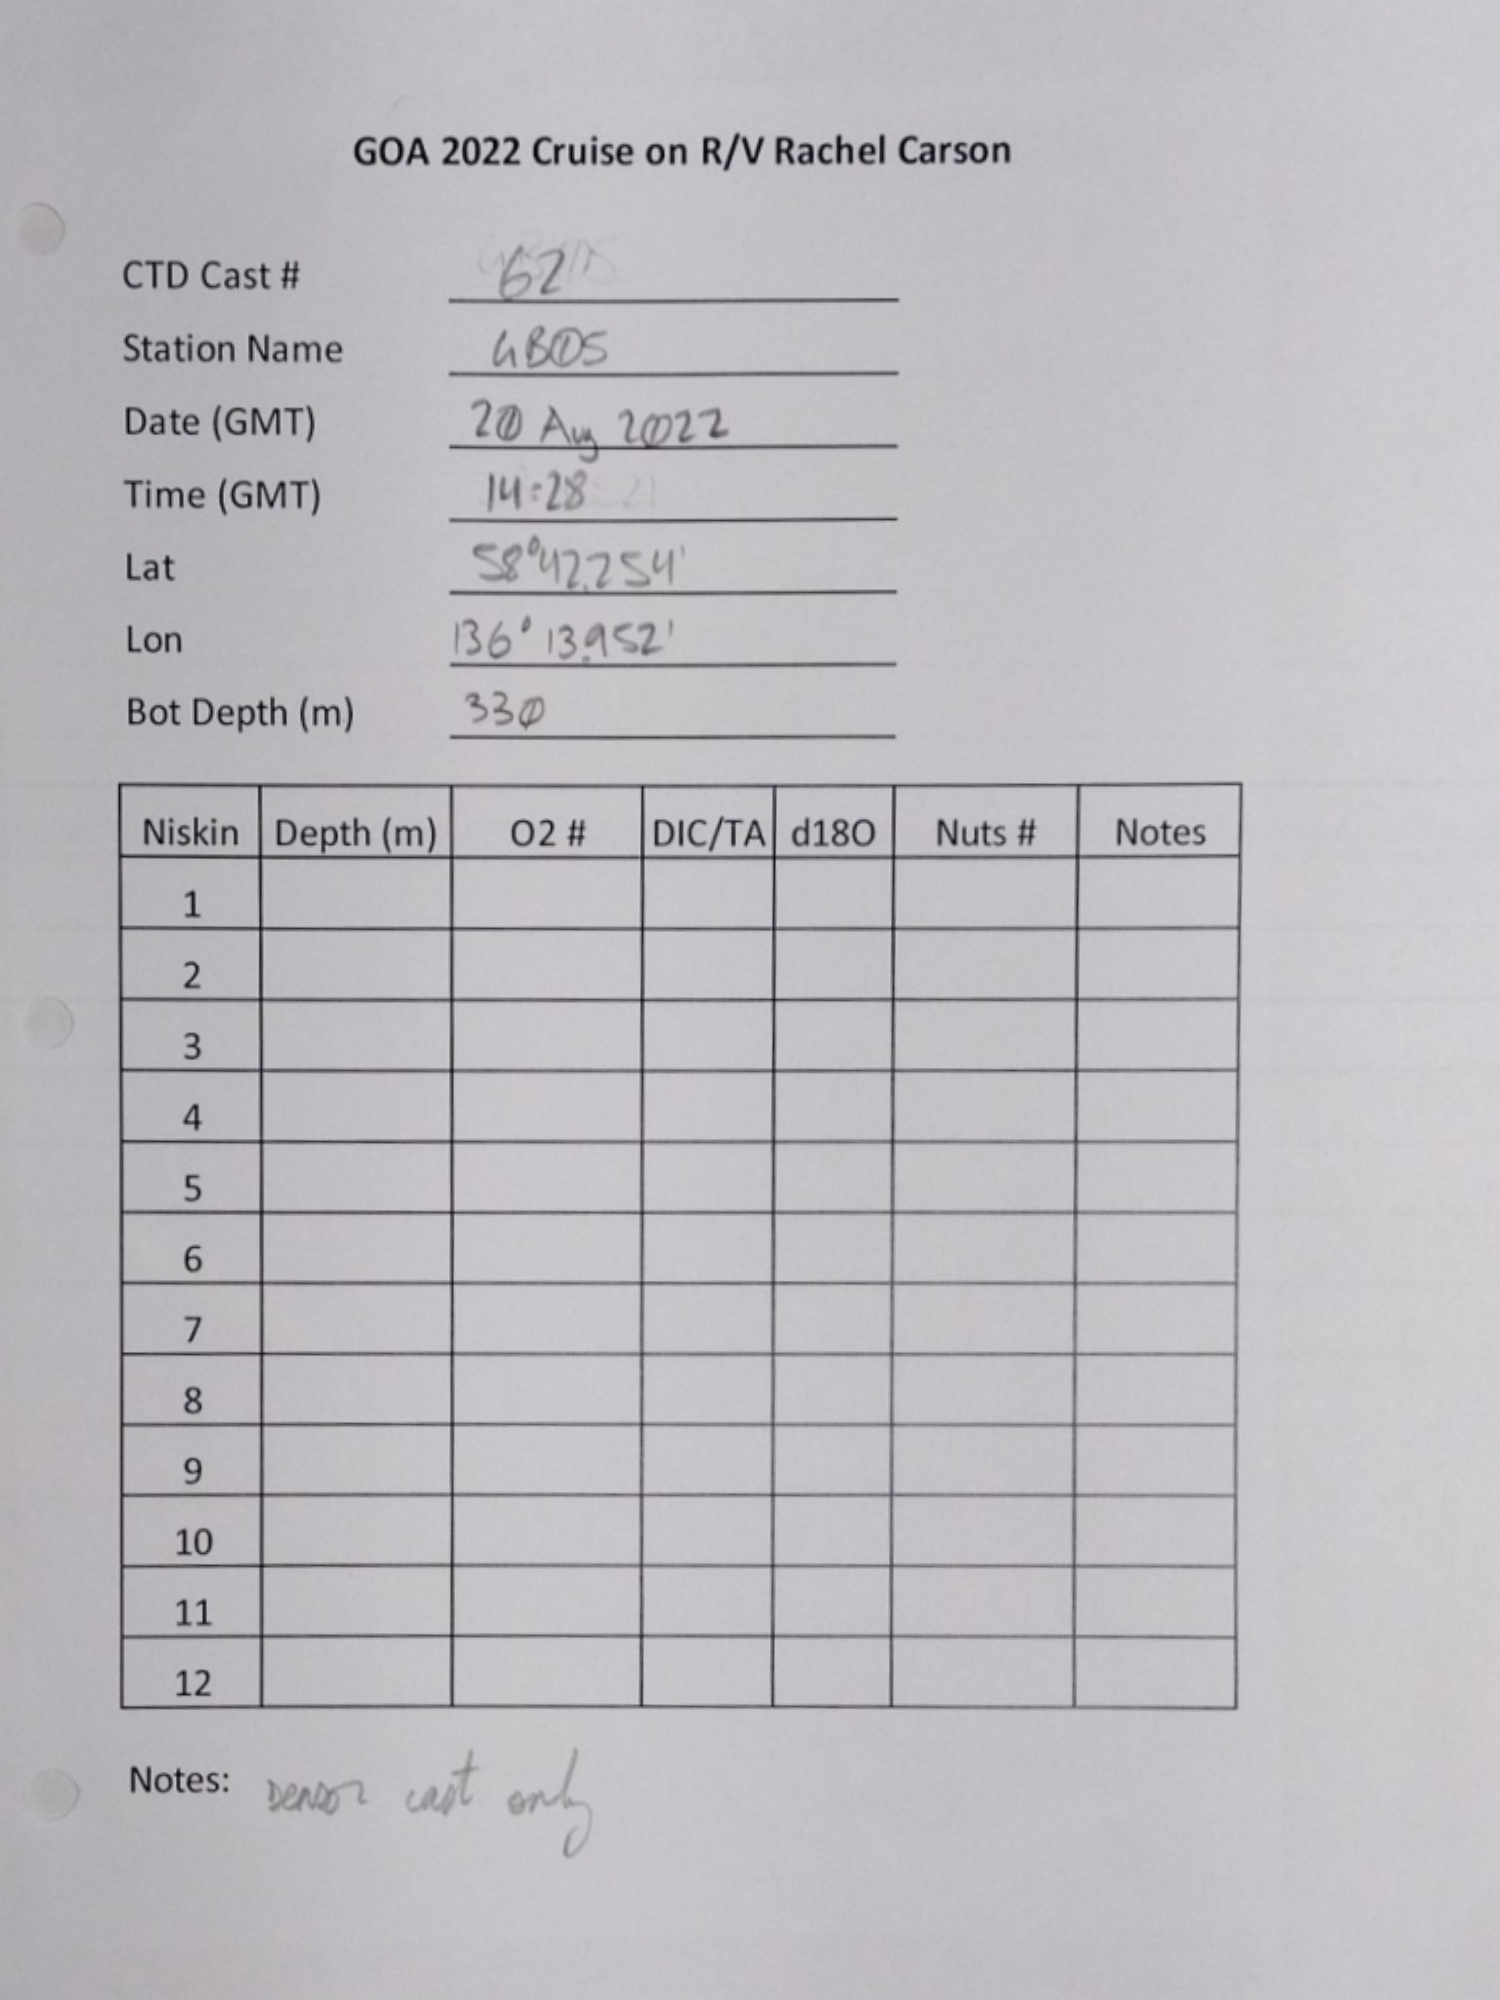 GOA 2022 Cruise on R/V Rachel Carson
CTD Cast # 62
Station Name GB05
Date (GMT) 20 Aug 2022
Time (GMT) 14:28
Lat 58°42.254'
Lon 136° 13.952'
Bot Depth (m) 330
Niskin Depth (m) O2 # DIC/TA d18O Nuts # Notes
1
2
3
4
5
6
7
8
9
10
11
12
Notes: sensor cast only